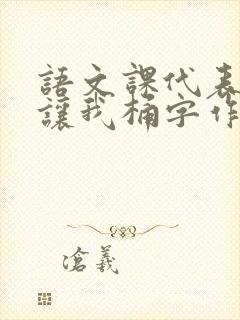 語文課代表
讓我桶字作
滄義